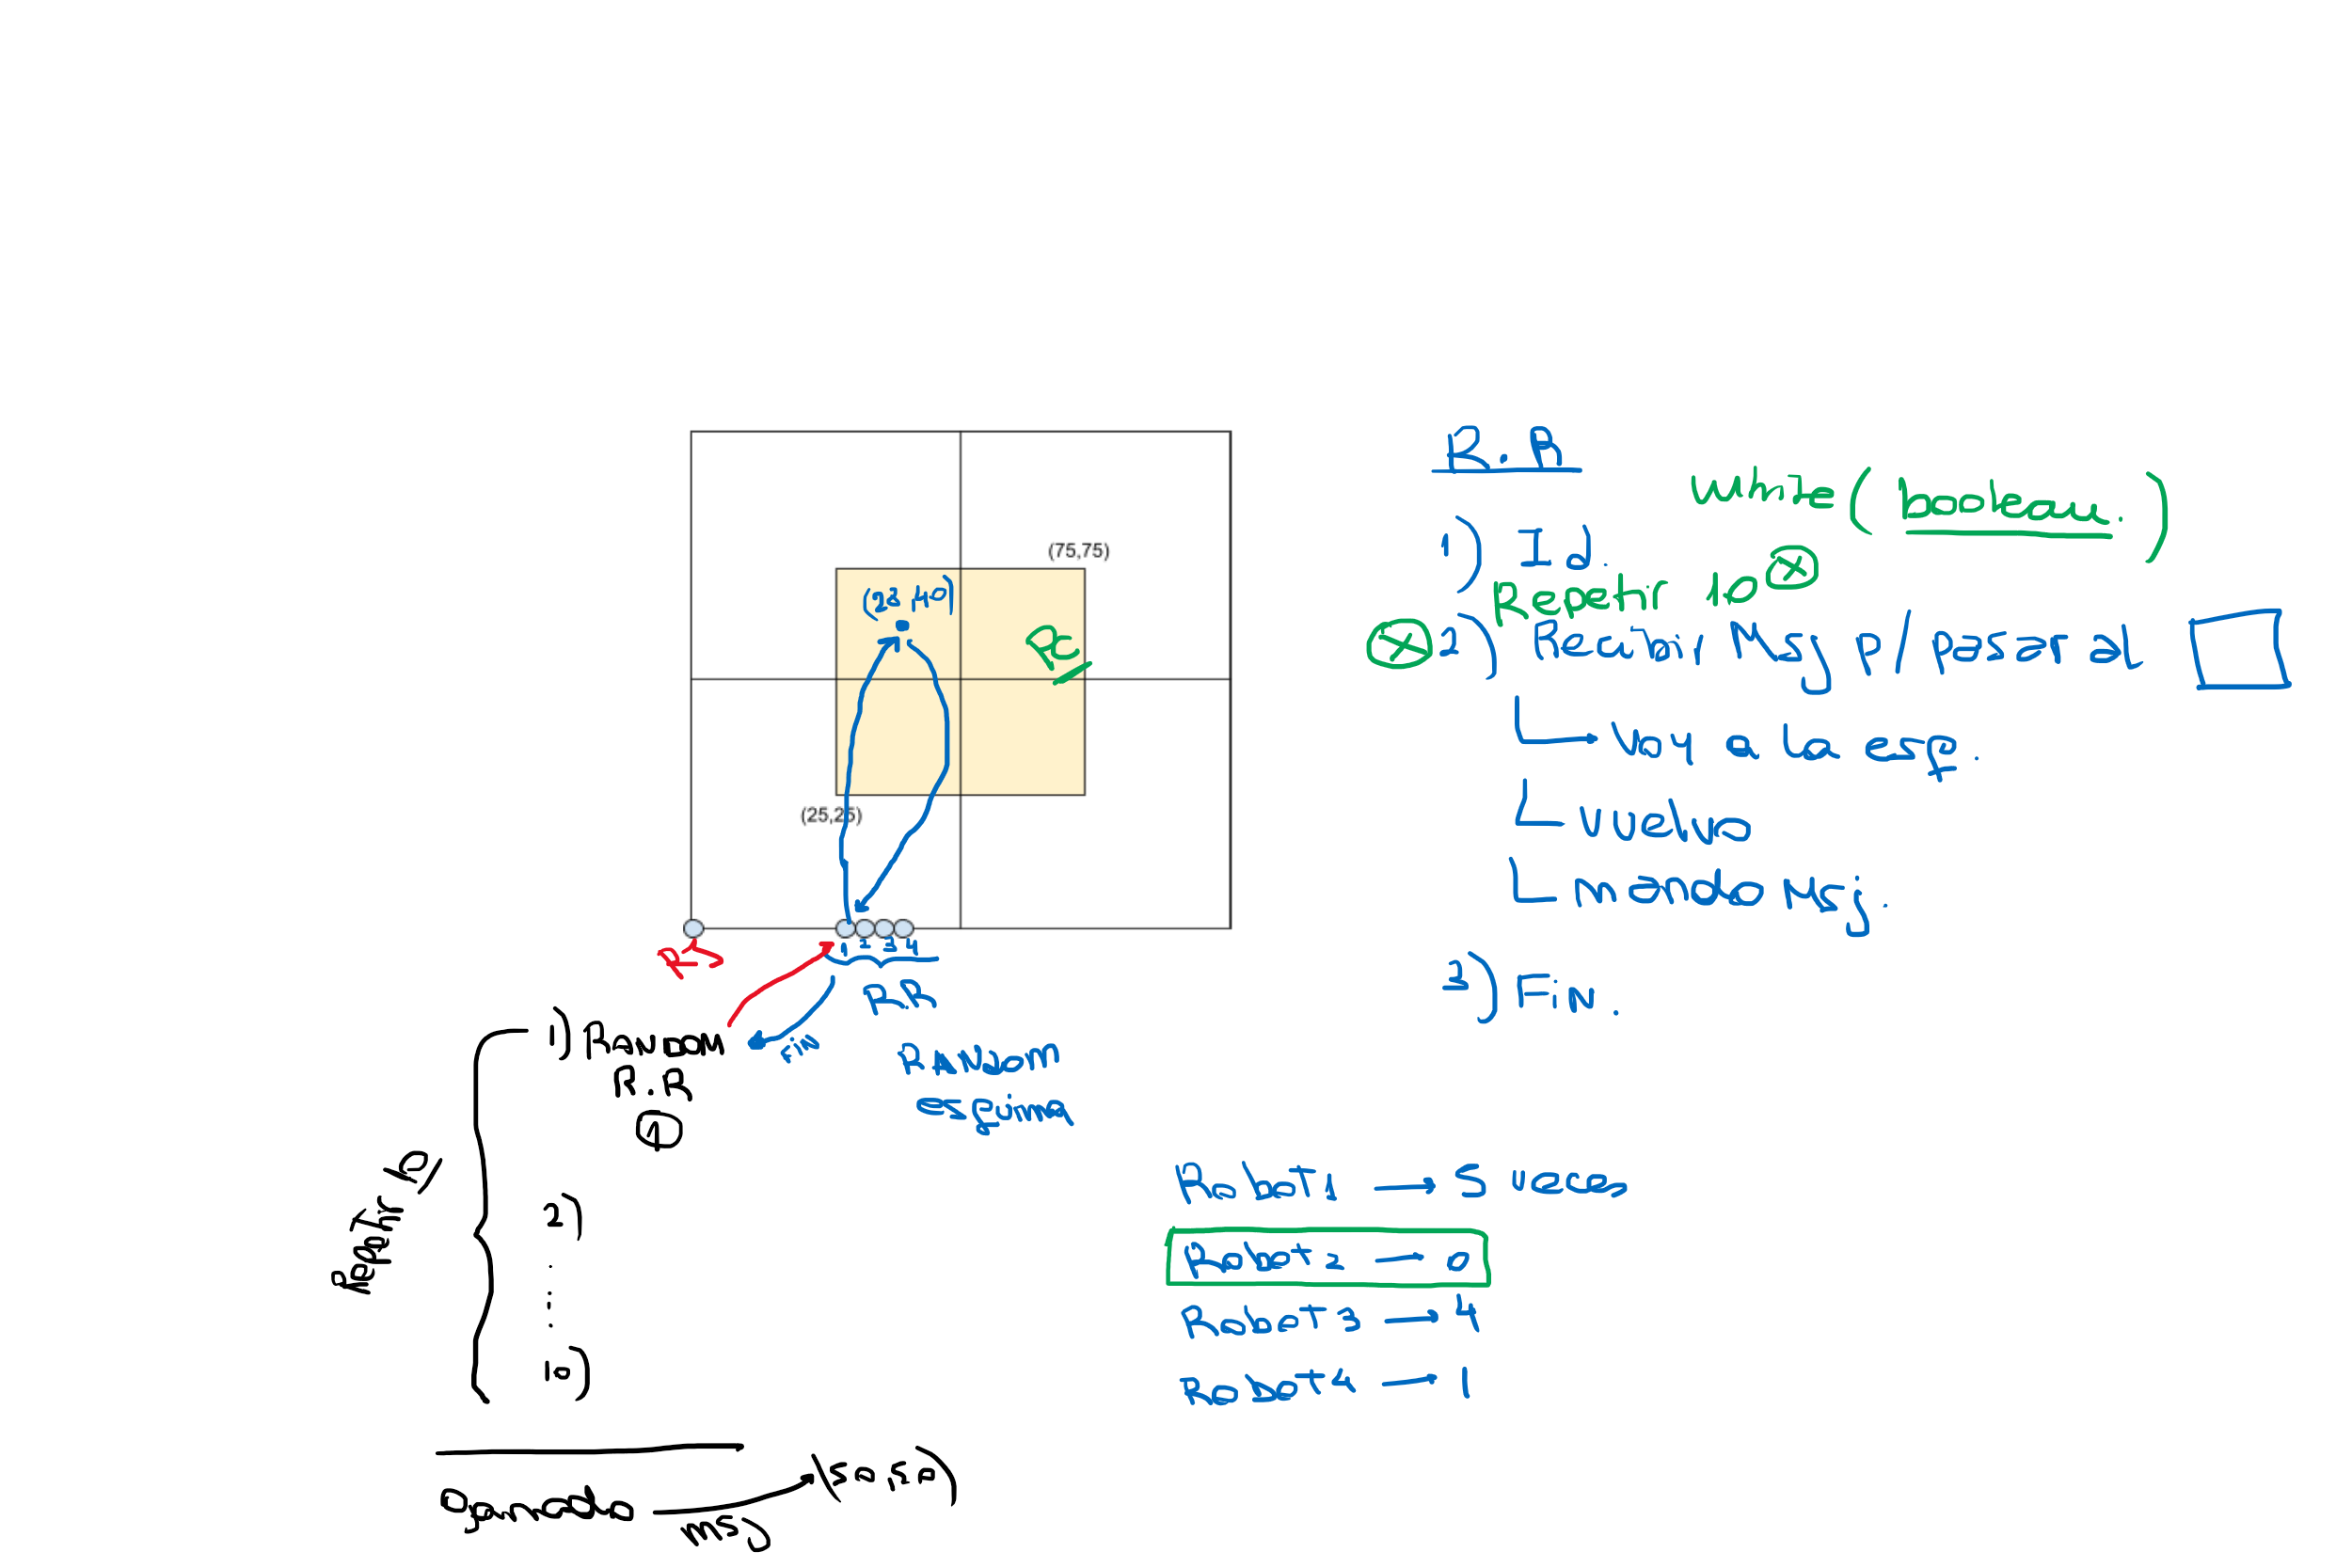 (75,75)
(28,40)
P
(25,25)
RJ
1 2 3 4
R.R
Fin
Random
esquina
1) Random
R.R
4
2)
10)
Repetir 10
Ganado
msj
(50,50)
R.R
while (boolean.)
1) Id.
Repetir 10
2) Recibir Msj p/ pasar al
voy a la esq.
vuelvo
mando Msj.
3) Fin.
Robot1 → 5 veces
Robot2 → 0
Robot3 → 4
Robot4 → 1